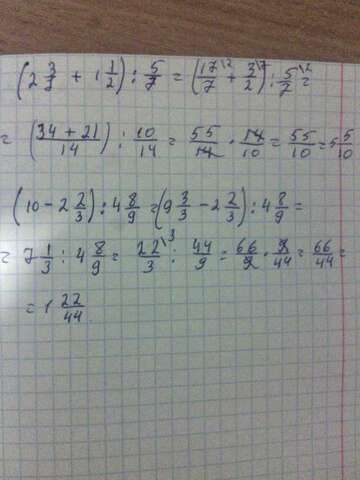 (2 3/7 + 1 1/2) : 5/7 = (17/7 \2 + 3/2 \7) : 5/7 \2 =
= (34 + 21 / 14) : 10/14 = 55/14 · 14/10 = 55/10 = 5 5/10
(10 - 2 2/3) : 4 8/9 = (9 3/3 - 2 2/3) : 4 8/9 =
= 7 1/3 : 4 8/9 = 22/3 \3 : 44/9 = 66/9 · 9/44 = 66/44 =
= 1 22/44